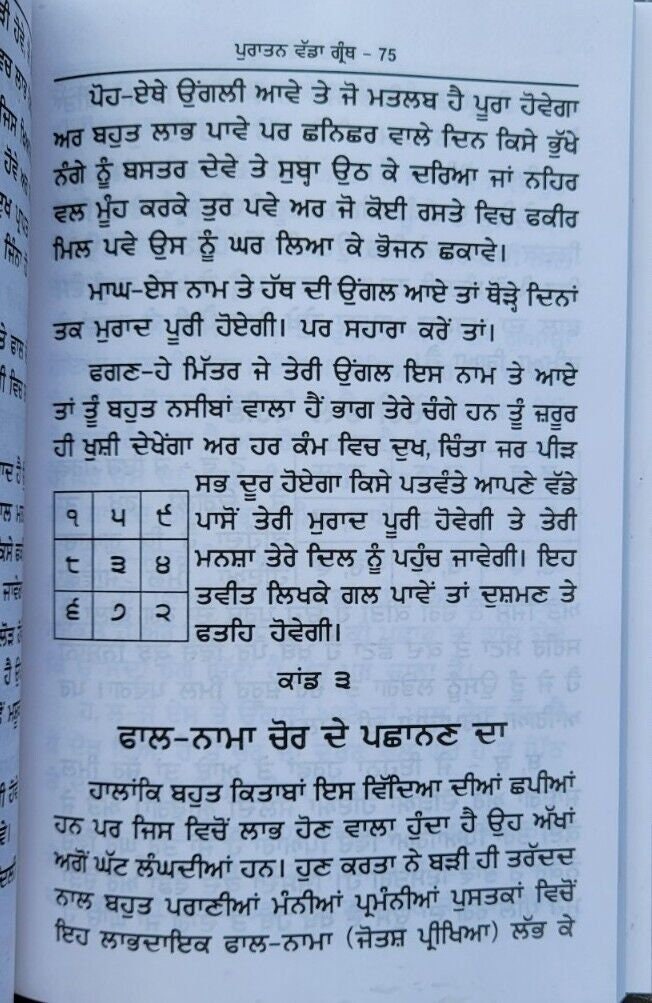 ਪੁਰਾਤਨ ਵੱਡਾ ਗ੍ਰੰਥ - 75
ਪੋਹ-ਏਥੇ ਉਂਗਲੀ ਆਵੇ ਤੇ ਜੋ ਮਤਲਬ ਹੈ ਪੂਰਾ ਹੋਵੇਗਾ
ਅਰ ਬਹੁਤ ਲਾਭ ਪਾਵੇ ਪਰ ਛਨਿਛਰ ਵਾਲੇ ਦਿਨ ਕਿਸੇ ਭੁੱਖੇ
ਨੰਗੇ ਨੂੰ ਬਸਤਰ ਦੇਵੇ ਤੇ ਸੁਬ੍ਹਾ ਉਠ ਕੇ ਦਰਿਆ ਜਾਂ ਨਹਿਰ
ਵਲ ਮੂੰਹ ਕਰਕੇ ਤੁਰ ਪਵੇ ਅਰ ਜੋ ਕੋਈ ਰਸਤੇ ਵਿਚ ਫਕੀਰ
ਮਿਲ ਪਵੇ ਉਸ ਨੂੰ ਘਰ ਲਿਆ ਕੇ ਭੋਜਨ ਛਕਾਵੇ।
ਮਾਘ-ਏਸ ਨਾਮ ਤੇ ਹੱਥ ਦੀ ਉਂਗਲ ਆਏ ਤਾਂ ਥੋੜ੍ਹੇ ਦਿਨਾਂ
ਤਕ ਮੁਰਾਦ ਪੂਰੀ ਹੋਏਗੀ। ਪਰ ਸਹਾਰਾ ਕਰੇਂ ਤਾਂ।
ਫਗਣ-ਹੇ ਮਿੱਤਰ ਜੇ ਤੇਰੀ ਉਂਗਲ ਇਸ ਨਾਮ ਤੇ ਆਏ
ਤਾਂ ਤੂੰ ਬਹੁਤ ਨਸੀਬਾਂ ਵਾਲਾ ਹੈਂ ਭਾਗ ਤੇਰੇ ਚੰਗੇ ਹਨ ਤੂੰ ਜ਼ਰੂਰ
ਹੀ ਖੁਸ਼ੀ ਦੇਖੇਂਗਾ ਅਰ ਹਰ ਕੰਮ ਵਿਚ ਦੁਖ, ਚਿੰਤਾ ਜਰ ਪੀੜ
ਸਭ ਦੂਰ ਹੋਏਗਾ ਕਿਸੇ ਪਤਵੰਤੇ ਆਪਣੇ ਵੱਡੇ
ਪਾਸੋਂ ਤੇਰੀ ਮੁਰਾਦ ਪੂਰੀ ਹੋਵੇਗੀ ਤੇ ਤੇਰੀ
ਮਨਸ਼ਾ ਤੇਰੇ ਦਿਲ ਨੂੰ ਪਹੁੰਚ ਜਾਵੇਗੀ। ਇਹ
ਤਵੀਤ ਲਿਖਕੇ ਗਲ ਪਾਵੇਂ ਤਾਂ ਦੁਸ਼ਮਣ ਤੇ
ਫਤਹਿ ਹੋਵੇਗੀ।
੧ ੫ ੯
੮ ੩ ੪
੬ ੭ ੨
ਕਾਂਡ ੩
ਫਾਲ-ਨਾਮਾ ਚੋਰ ਦੇ ਪਛਾਨਣ ਦਾ
ਹਾਲਾਂਕਿ ਬਹੁਤ ਕਿਤਾਬਾਂ ਇਸ ਵਿੱਦਿਆ ਦੀਆਂ ਛਪੀਆਂ
ਹਨ ਪਰ ਜਿਸ ਵਿਚੋਂ ਲਾਭ ਹੋਣ ਵਾਲਾ ਹੁੰਦਾ ਹੈ ਉਹ ਅੱਖਾਂ
ਅਗੋਂ ਘੱਟ ਲੰਘਦੀਆਂ ਹਨ। ਹੁਣ ਕਰਤਾ ਨੇ ਬੜੀ ਹੀ ਤਰੱਦਦ
ਨਾਲ ਬਹੁਤ ਪਰਾਣੀਆਂ ਮੰਨੀਆਂ ਪ੍ਰਮੰਨੀਆਂ ਪੁਸਤਕਾਂ ਵਿਚੋਂ
ਇਹ ਲਾਭਦਾਇਕ ਫਾਲ-ਨਾਮਾ (ਜੋਤਸ਼ ਪ੍ਰੀਖਿਆ) ਲੱਭ ਕੇ